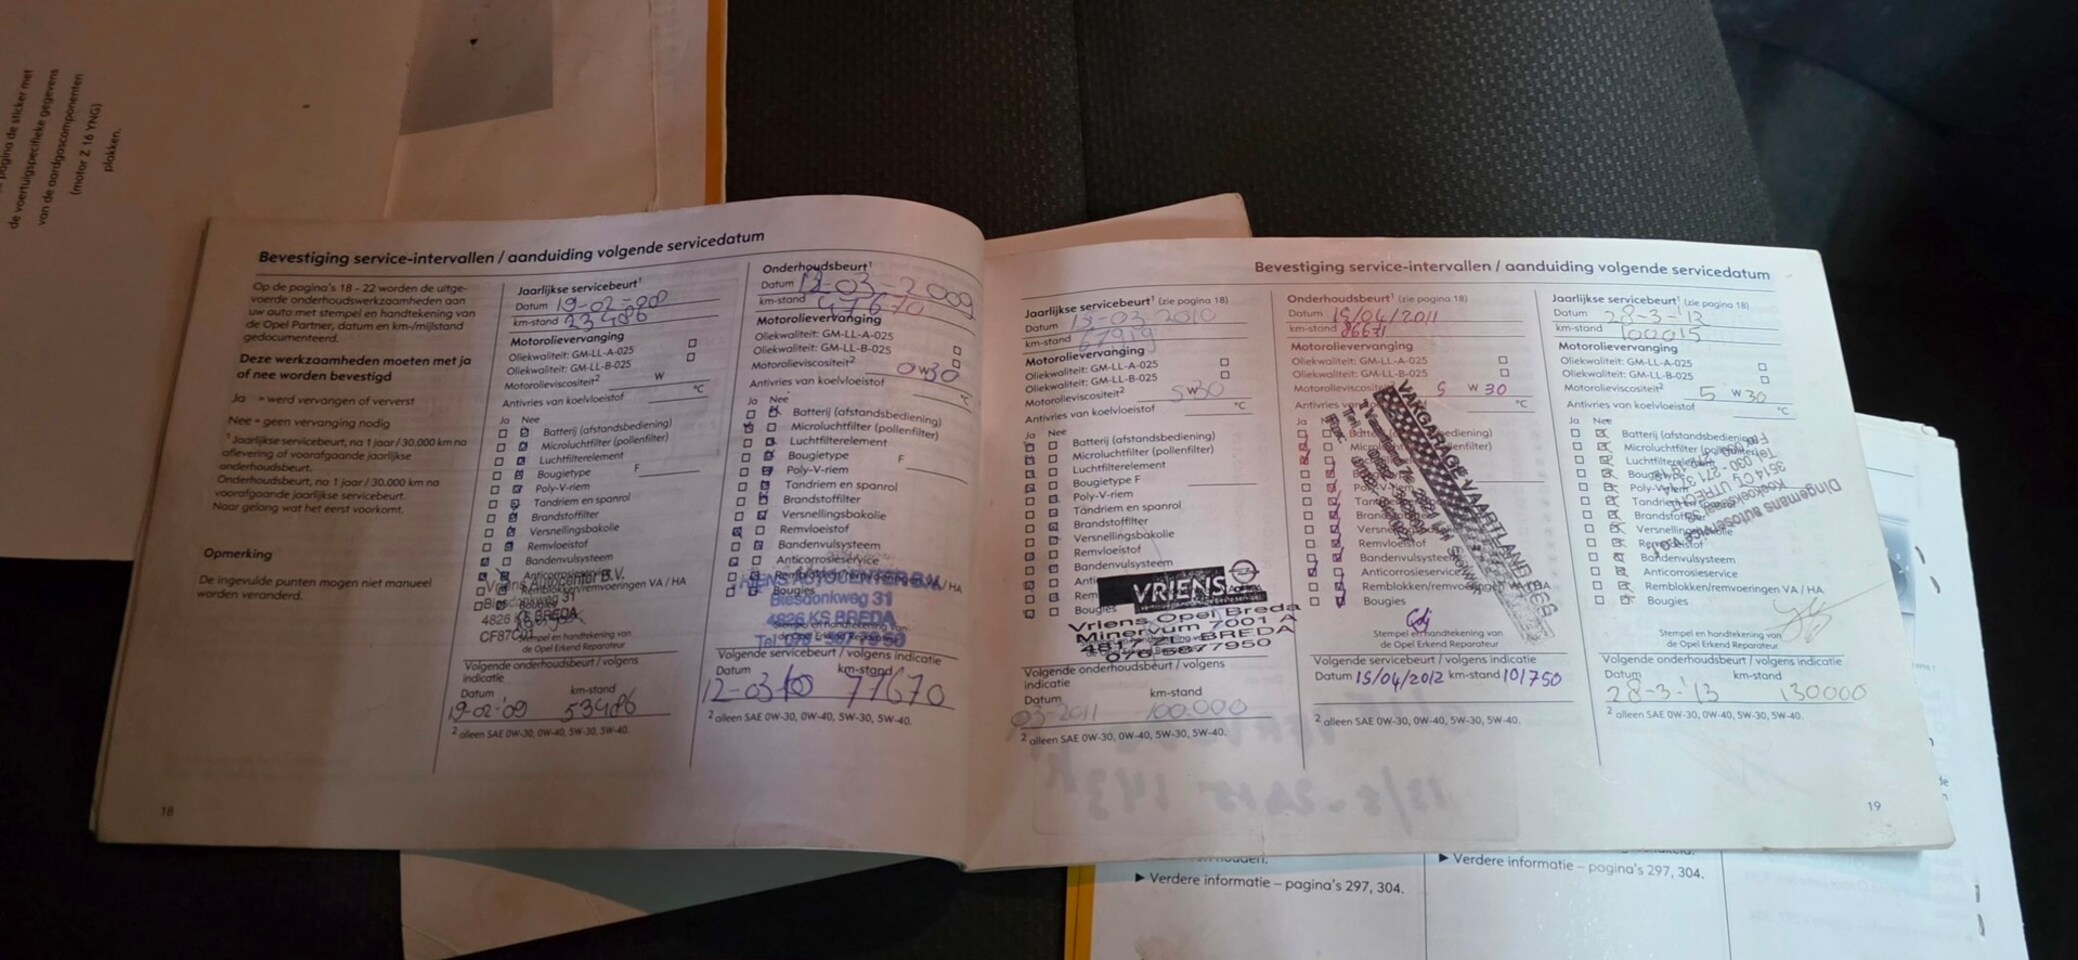 pagina de sticker met
de voertuigspecifieke gegevens
van de aardgascomponenten
(motor Z 16 YNG)
plakken.
Bevestiging service-intervallen / aanduiding volgende servicedatum
Op de pagina's 18 - 22 worden de uitge-
voerde onderhoudswerkzaamheden aan
uw auto met stempel en handtekening van
de Opel Partner, datum en km-/mijlstand
gedocumenteerd.
Deze werkzaamheden moeten met ja
of nee worden bevestigd
Ja = werd vervangen of ververst
Nee = geen vervanging nodig
1 Jaarlijkse servicebeurt, na 1 jaar / 30.000 km na
aflevering of voorafgaande jaarlijkse
onderhoudsbeurt.
Onderhoudsbeurt, na 1 jaar / 30.000 km na
voorafgaande jaarlijkse servicebeurt.
Naar gelang wat het eerst voorkomt.
Opmerking
De ingevulde punten mogen niet manueel
worden veranderd.
18
Jaarlijkse servicebeurt1
Datum 19-02-
km-stand 23486
Motorolievervanging
Oliekwaliteit: GM-LL-A-025
Oliekwaliteit: GM-LL-B-025
Motorolieviscositeit2 W
Antivries van koelvloeistof °C
Ja Nee
Batterij (afstandsbediening)
Microluchtfilter (pollenfilter)
Luchtfilterelement
Bougietype F
Poly-V-riem
Tandriem en spanrol
Brandstoffilter
Versnellingsbakolie
Remvloeistof
Bandenvulsysteem
Anticorrosieservice
Remblokken/remvoeringen VA / HA
Bougies
Vriens Autocenter B.V.
Biesdonkweg 31
4826 KS BREDA
Stempel en handtekening van
de Opel Erkend Reparateur
Volgende onderhoudsbeurt / volgens
indicatie
Datum km-stand
19-02-'09 53486
2 alleen SAE 0W-30, 0W-40, 5W-30, 5W-40.
Onderhoudsbeurt1
Datum 12-03-2009
km-stand 47670
Motorolievervanging
Oliekwaliteit: GM-LL-A-025
Oliekwaliteit: GM-LL-B-025
Motorolieviscositeit2 0W30
Antivries van koelvloeistof °C
Ja Nee
Batterij (afstandsbediening)
Microluchtfilter (pollenfilter)
Luchtfilterelement
Bougietype F
Poly-V-riem
Tandriem en spanrol
Brandstoffilter
Versnellingsbakolie
Remvloeistof
Bandenvulsysteem
Anticorrosieservice
VA / HA
Bougies
VRIENS AUTOCENTER B.V.
Biesdonkweg 31
4826 KS BREDA
Stempel en handtekening van
de Opel Erkend Reparateur
Volgende servicebeurt / volgens indicatie
Datum km-stand
12-03-10 77670
2 alleen SAE 0W-30, 0W-40, 5W-30, 5W-40.
Bevestiging service-intervallen / aanduiding volgende servicedatum
Jaarlijkse servicebeurt1 (zie pagina 18)
Datum 15-03-2010
km-stand 67919
Motorolievervanging
Oliekwaliteit: GM-LL-A-025
Oliekwaliteit: GM-LL-B-025
Motorolieviscositeit2 5W30
Antivries van koelvloeistof °C
Ja Nee
Batterij (afstandsbediening)
Microluchtfilter (pollenfilter)
Luchtfilterelement
Bougietype F
Poly-V-riem
Tandriem en spanrol
Brandstoffilter
Versnellingsbakolie
Remvloeistof
Bandenvulsysteem
Bougies
VRIENS
Vriens Opel Breda
Minervum 7001 A
4817 ZL BREDA
076 5877950
Volgende onderhoudsbeurt / volgens
indicatie
Datum km-stand
03-2011 100.000
2 alleen SAE 0W-30, 0W-40, 5W-30, 5W-40.
Onderhoudsbeurt1 (zie pagina 18)
Datum 15/04/2011
km-stand 86671
Motorolievervanging
Oliekwaliteit: GM-LL-A-025
Oliekwaliteit: GM-LL-B-025
Motorolieviscositeit 5 W 30
Antivries °C
Ja
Remvloeistof
Bandenvulsysteem
Anticorrosieservice
Remblokken/remvoeringen
Bougies
VAKGARAGE VAARTLAND
Stempel en handtekening van
de Opel Erkend Reparateur
Volgende servicebeurt / volgens indicatie
Datum 15/04/2012 km-stand 101750
2 alleen SAE 0W-30, 0W-40, 5W-30, 5W-40.
Jaarlijkse servicebeurt1 (zie pagina 18)
Datum 28-3-'12
km-stand 100015
Motorolievervanging
Oliekwaliteit: GM-LL-A-025
Oliekwaliteit: GM-LL-B-025
Motorolieviscositeit2 5 W 30
Antivries van koelvloeistof °C
Ja Nee
Batterij (afstandsbediening)
Microluchtfilter
Bandenvulsysteem
Anticorrosieservice
Remblokken/remvoeringen VA / HA
Bougies
Dingemans autoservice
3514 CL UTRECHT
Stempel en handtekening van
de Opel Erkend Reparateur
Volgende onderhoudsbeurt / volgens indicatie
Datum km-stand
28-3-'13 130000
2 alleen SAE 0W-30, 0W-40, 5W-30, 5W-40.
19
► Verdere informatie – pagina's 297, 304.
► Verdere informatie – pagina's 297, 304.